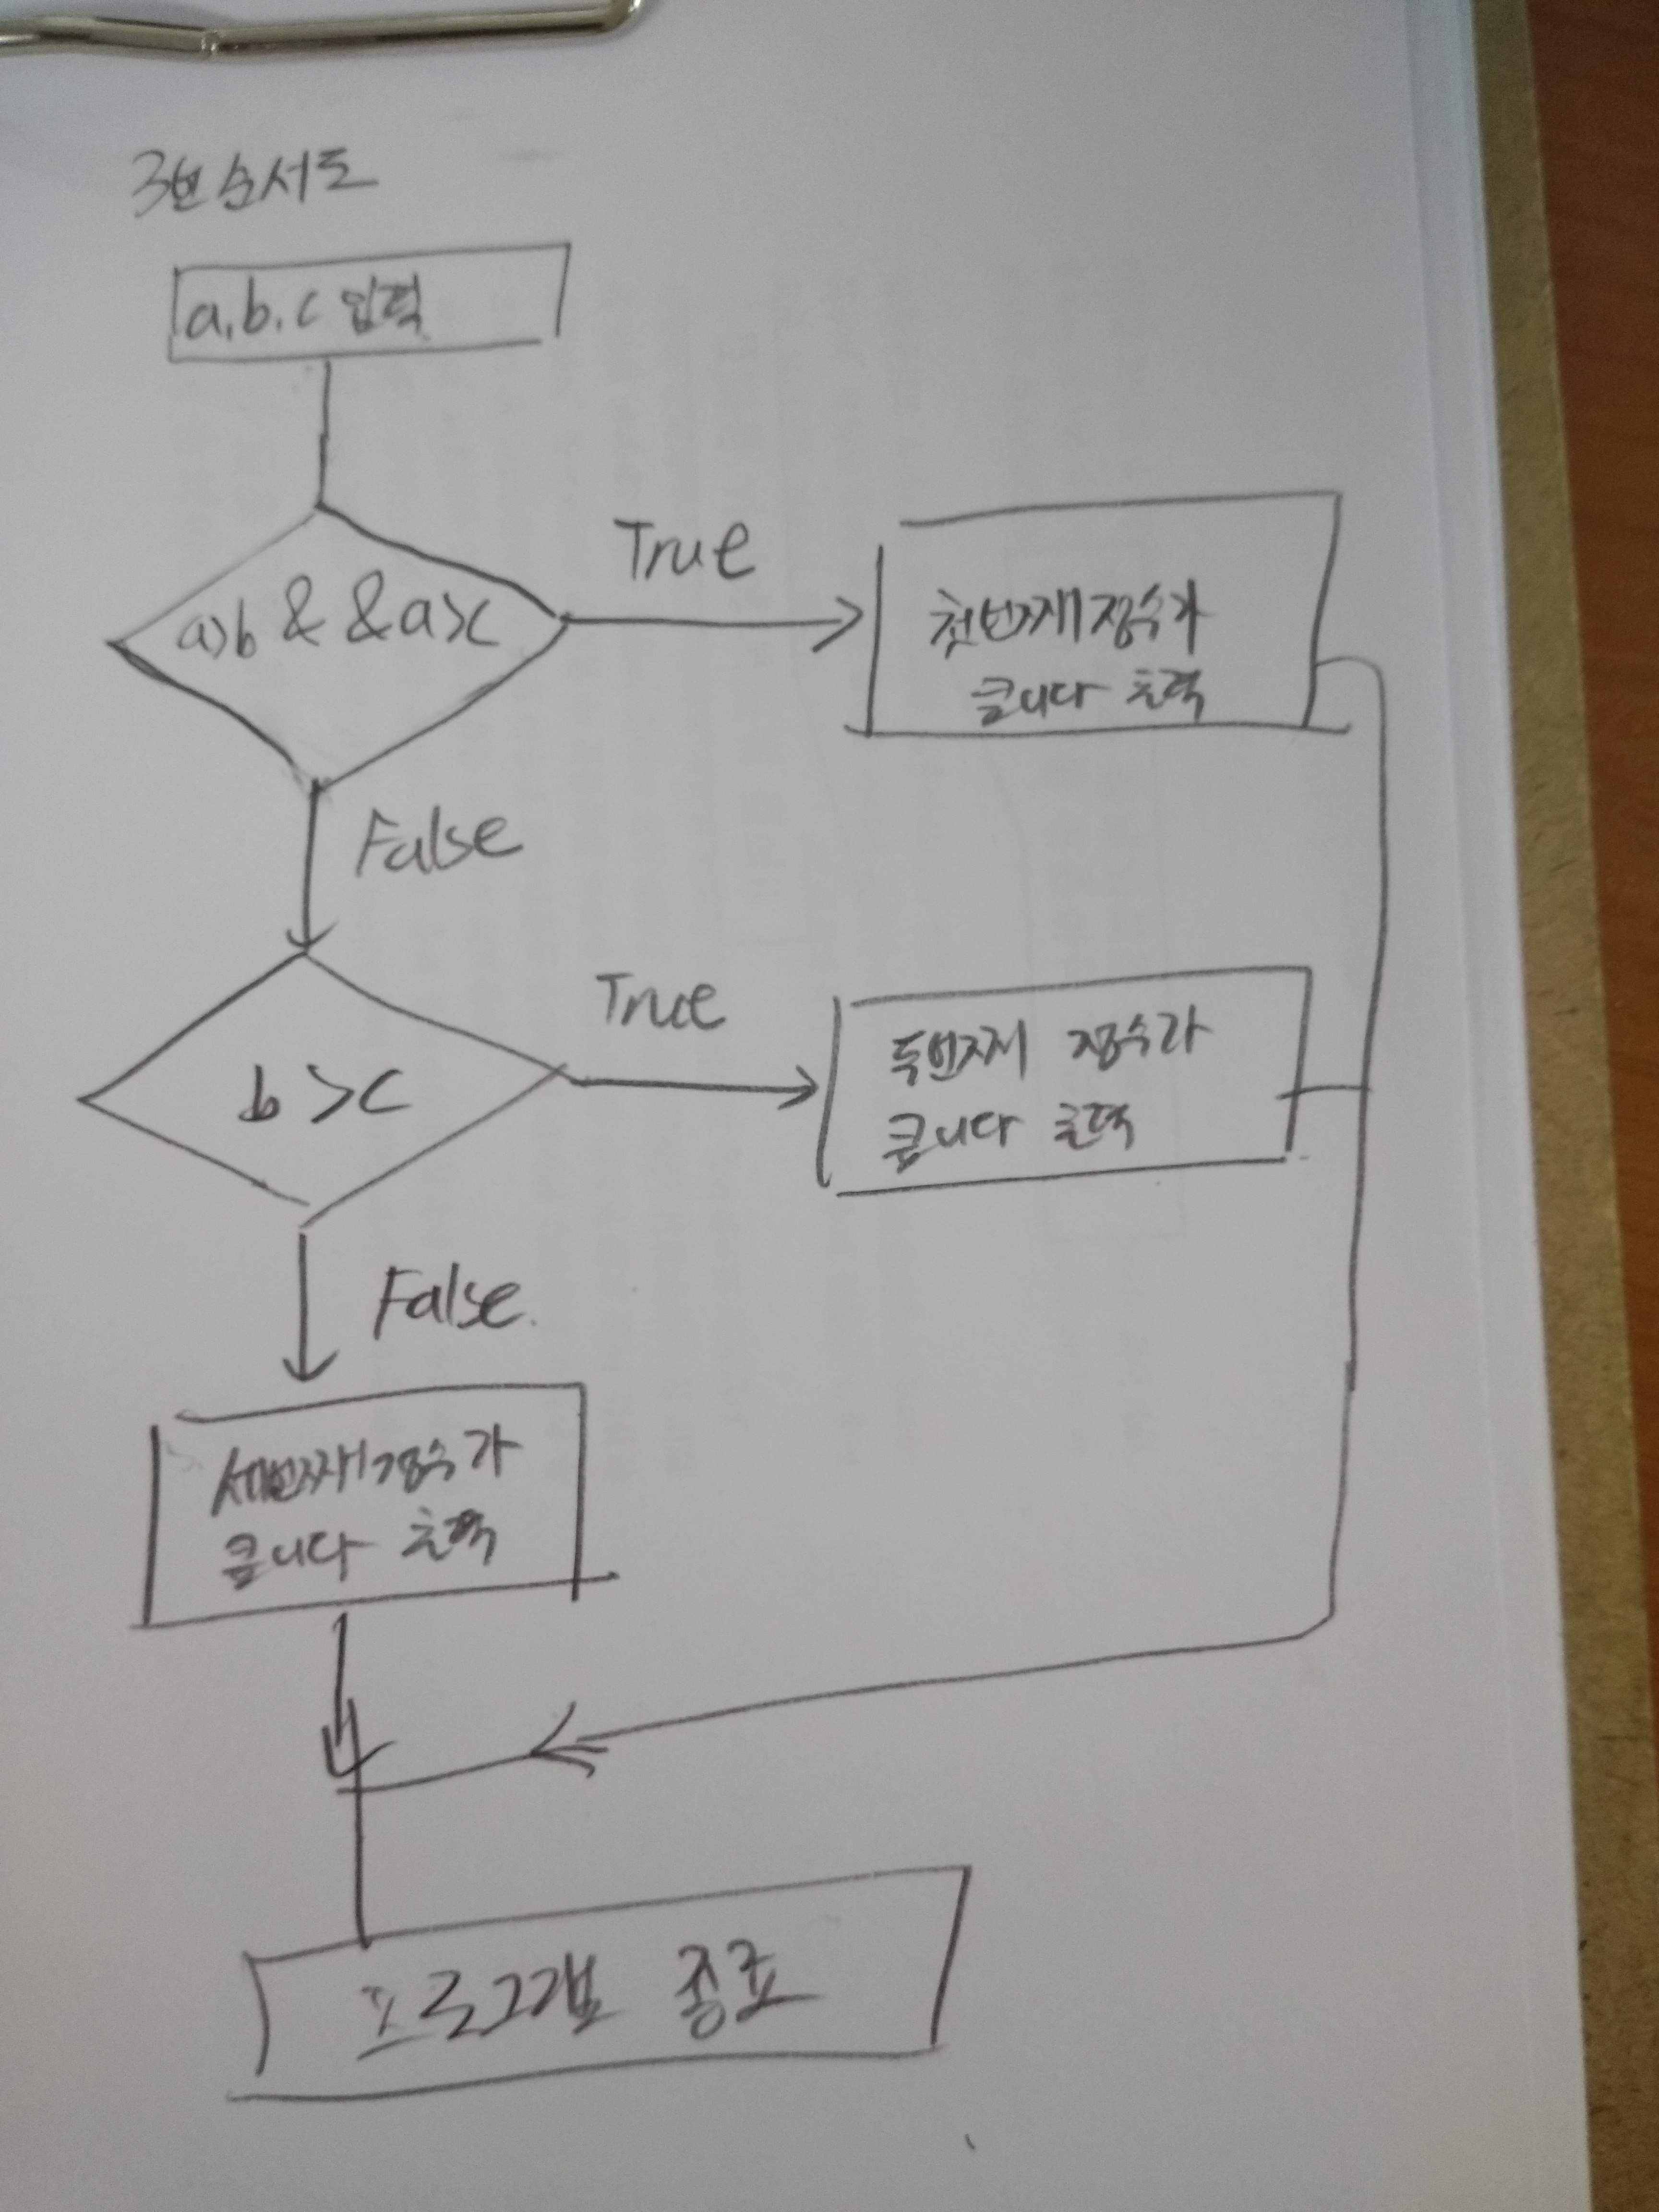 3번 순서도
a, b, c 입력
a>b && a>c
True
첫번째 정수가
큽니다 출력
False
b>c
True
두번째 정수가
큽니다 출력
False.
세번째 정수가
큽니다 출력
프로그램 종료